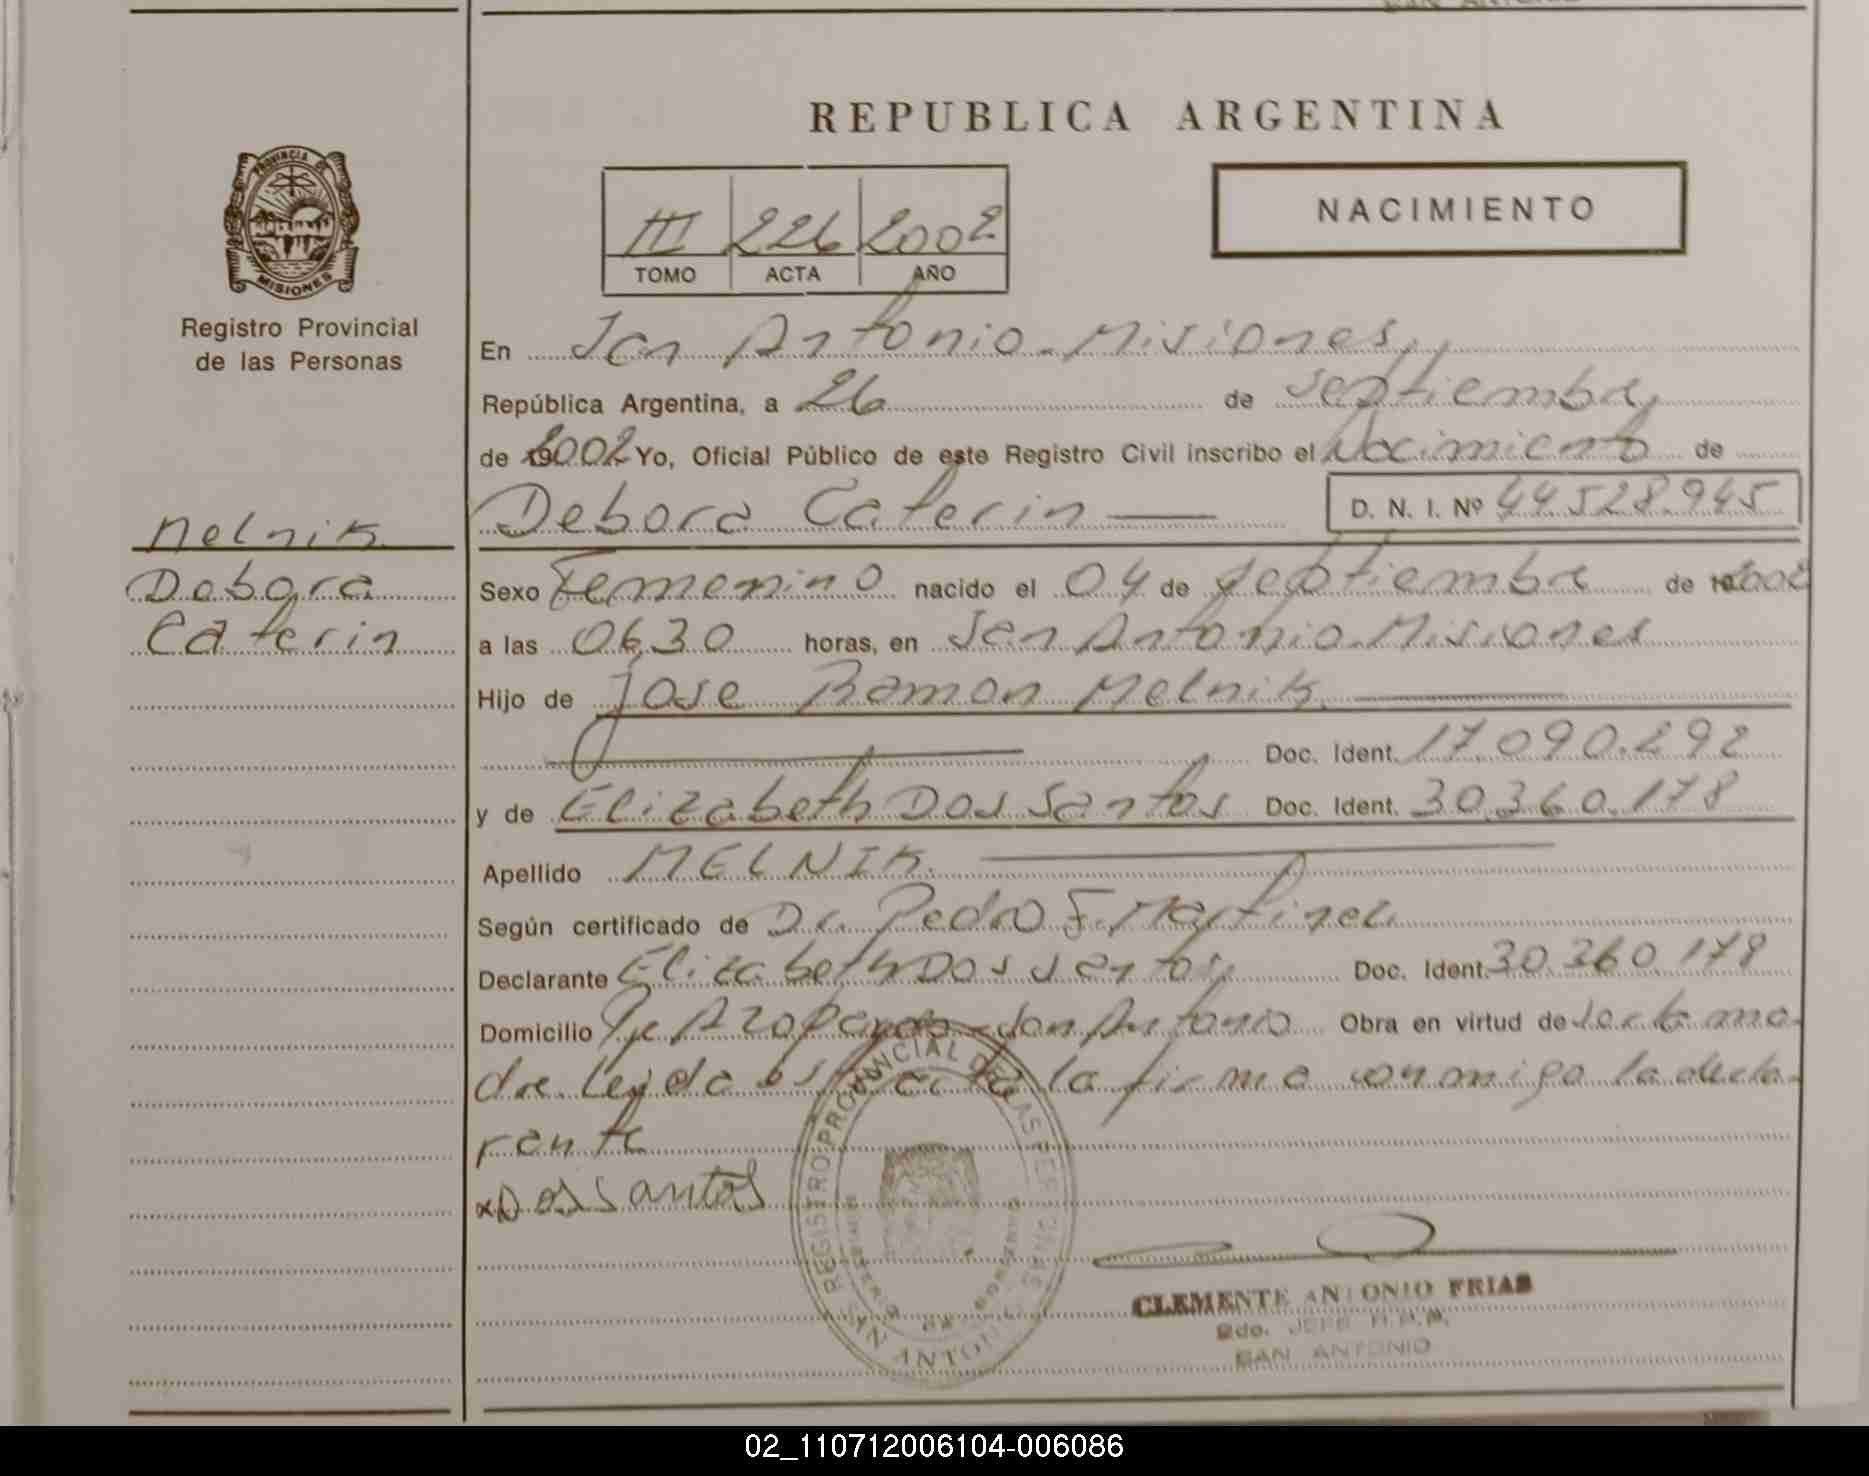 REPUBLICA ARGENTINA
PROVINCIA DE
MISIONES
Registro Provincial
de las Personas
III 226 2002
TOMO ACTA AÑO
NACIMIENTO
En San Antonio - Misiones,
República Argentina, a 26 de Septiembre
de 2002 Yo, Oficial Público de este Registro Civil inscribo el Nacimiento de
Debora Caterin D. N. I. Nº 44.528.945
Melnik
Debora
Caterin
Sexo Femenino nacido el 04 de Septiembre de 2002
a las 06,30 horas, en San Antonio. Misiones
Hijo de Jose Ramon Melnik.
Doc. Ident. 17.090.292
y de Elizabeth Dos Santos Doc. Ident. 30.360.178
Apellido MELNIK.
Según certificado de Dr. Pedro F. Martinez
Declarante Elizabeth Dos Santos, Doc. Ident. 30.360.178
Domicilio San Antonio Obra en virtud de ser la ma-
dre. Leida el acta la firma conmigo la decla-
rante
x Dos Santos
REGISTRO PROVINCIAL DE LAS PERSONAS
SAN ANTONIO
CLEMENTE ANTONIO FRIAS
2do. JEFE R.P.P.
SAN ANTONIO
02_110712006104-006086